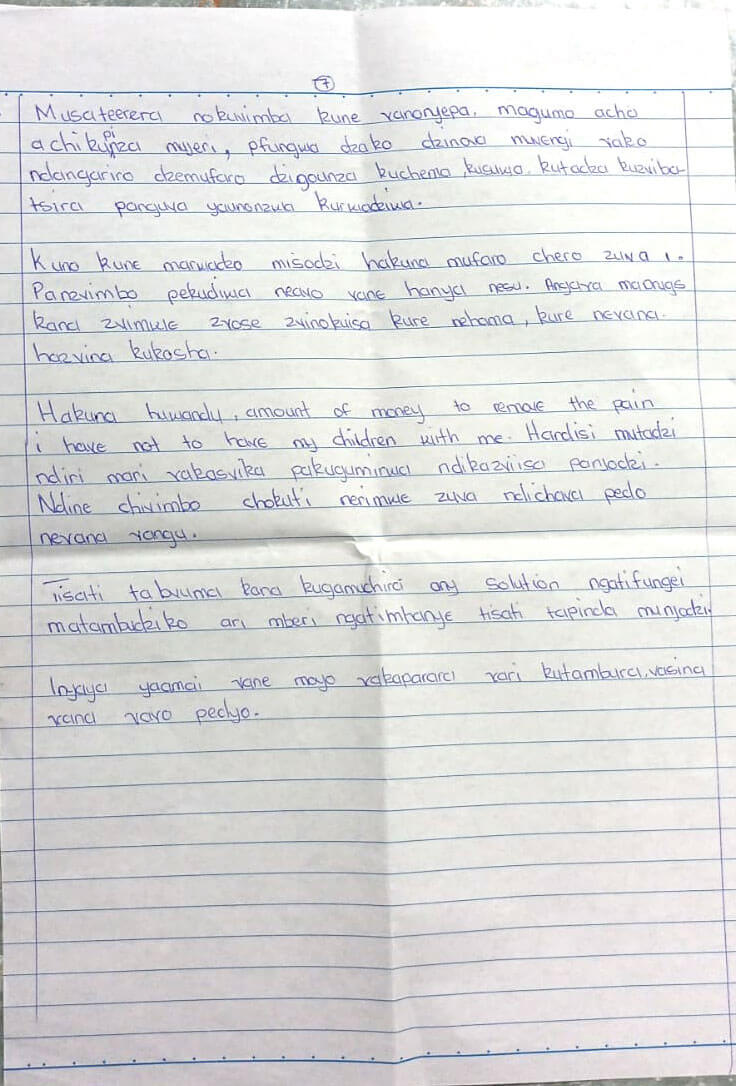 7
Musateerera nokuvimba kune vanonyepa, magumo acho
achikupinza mujeri, pfungwa dzako dzinova muvengi vako
ndangariro dzemufaro dzigounza kuchema, kusuwa, kutadza kuzviba-
tsira panguva yaunonzwa kurwadziwa.
Kuno kune marwadzo misodzi hakuna mufaro chero zuva 1.
Panevimbo pekudiwa neavo vane hanya nesu. Angava madrugs
kana zvimwe zvose zvinokuisa kure nehama, kure nevana.
hazvina kukosha.
Hakuna huwandu, amount of money to remove the pain
i have not to have my children with me. Handisi mutadzi
ndiri mari vakasvika pakuguminwa ndikazviisa panjodzi.
Ndine chivimbo chokuti nerimwe zuva ndichava pedo
nevana vangu.
Tisati tabvuma kana kugamuchira any solution ngatifungei
matambudziko ari mberi ngatimhanye tisati tapinda munjodzi
Inyaya yaamai vane moyo vakaparara vari kutambura, vasina
vana vavo pedyo.